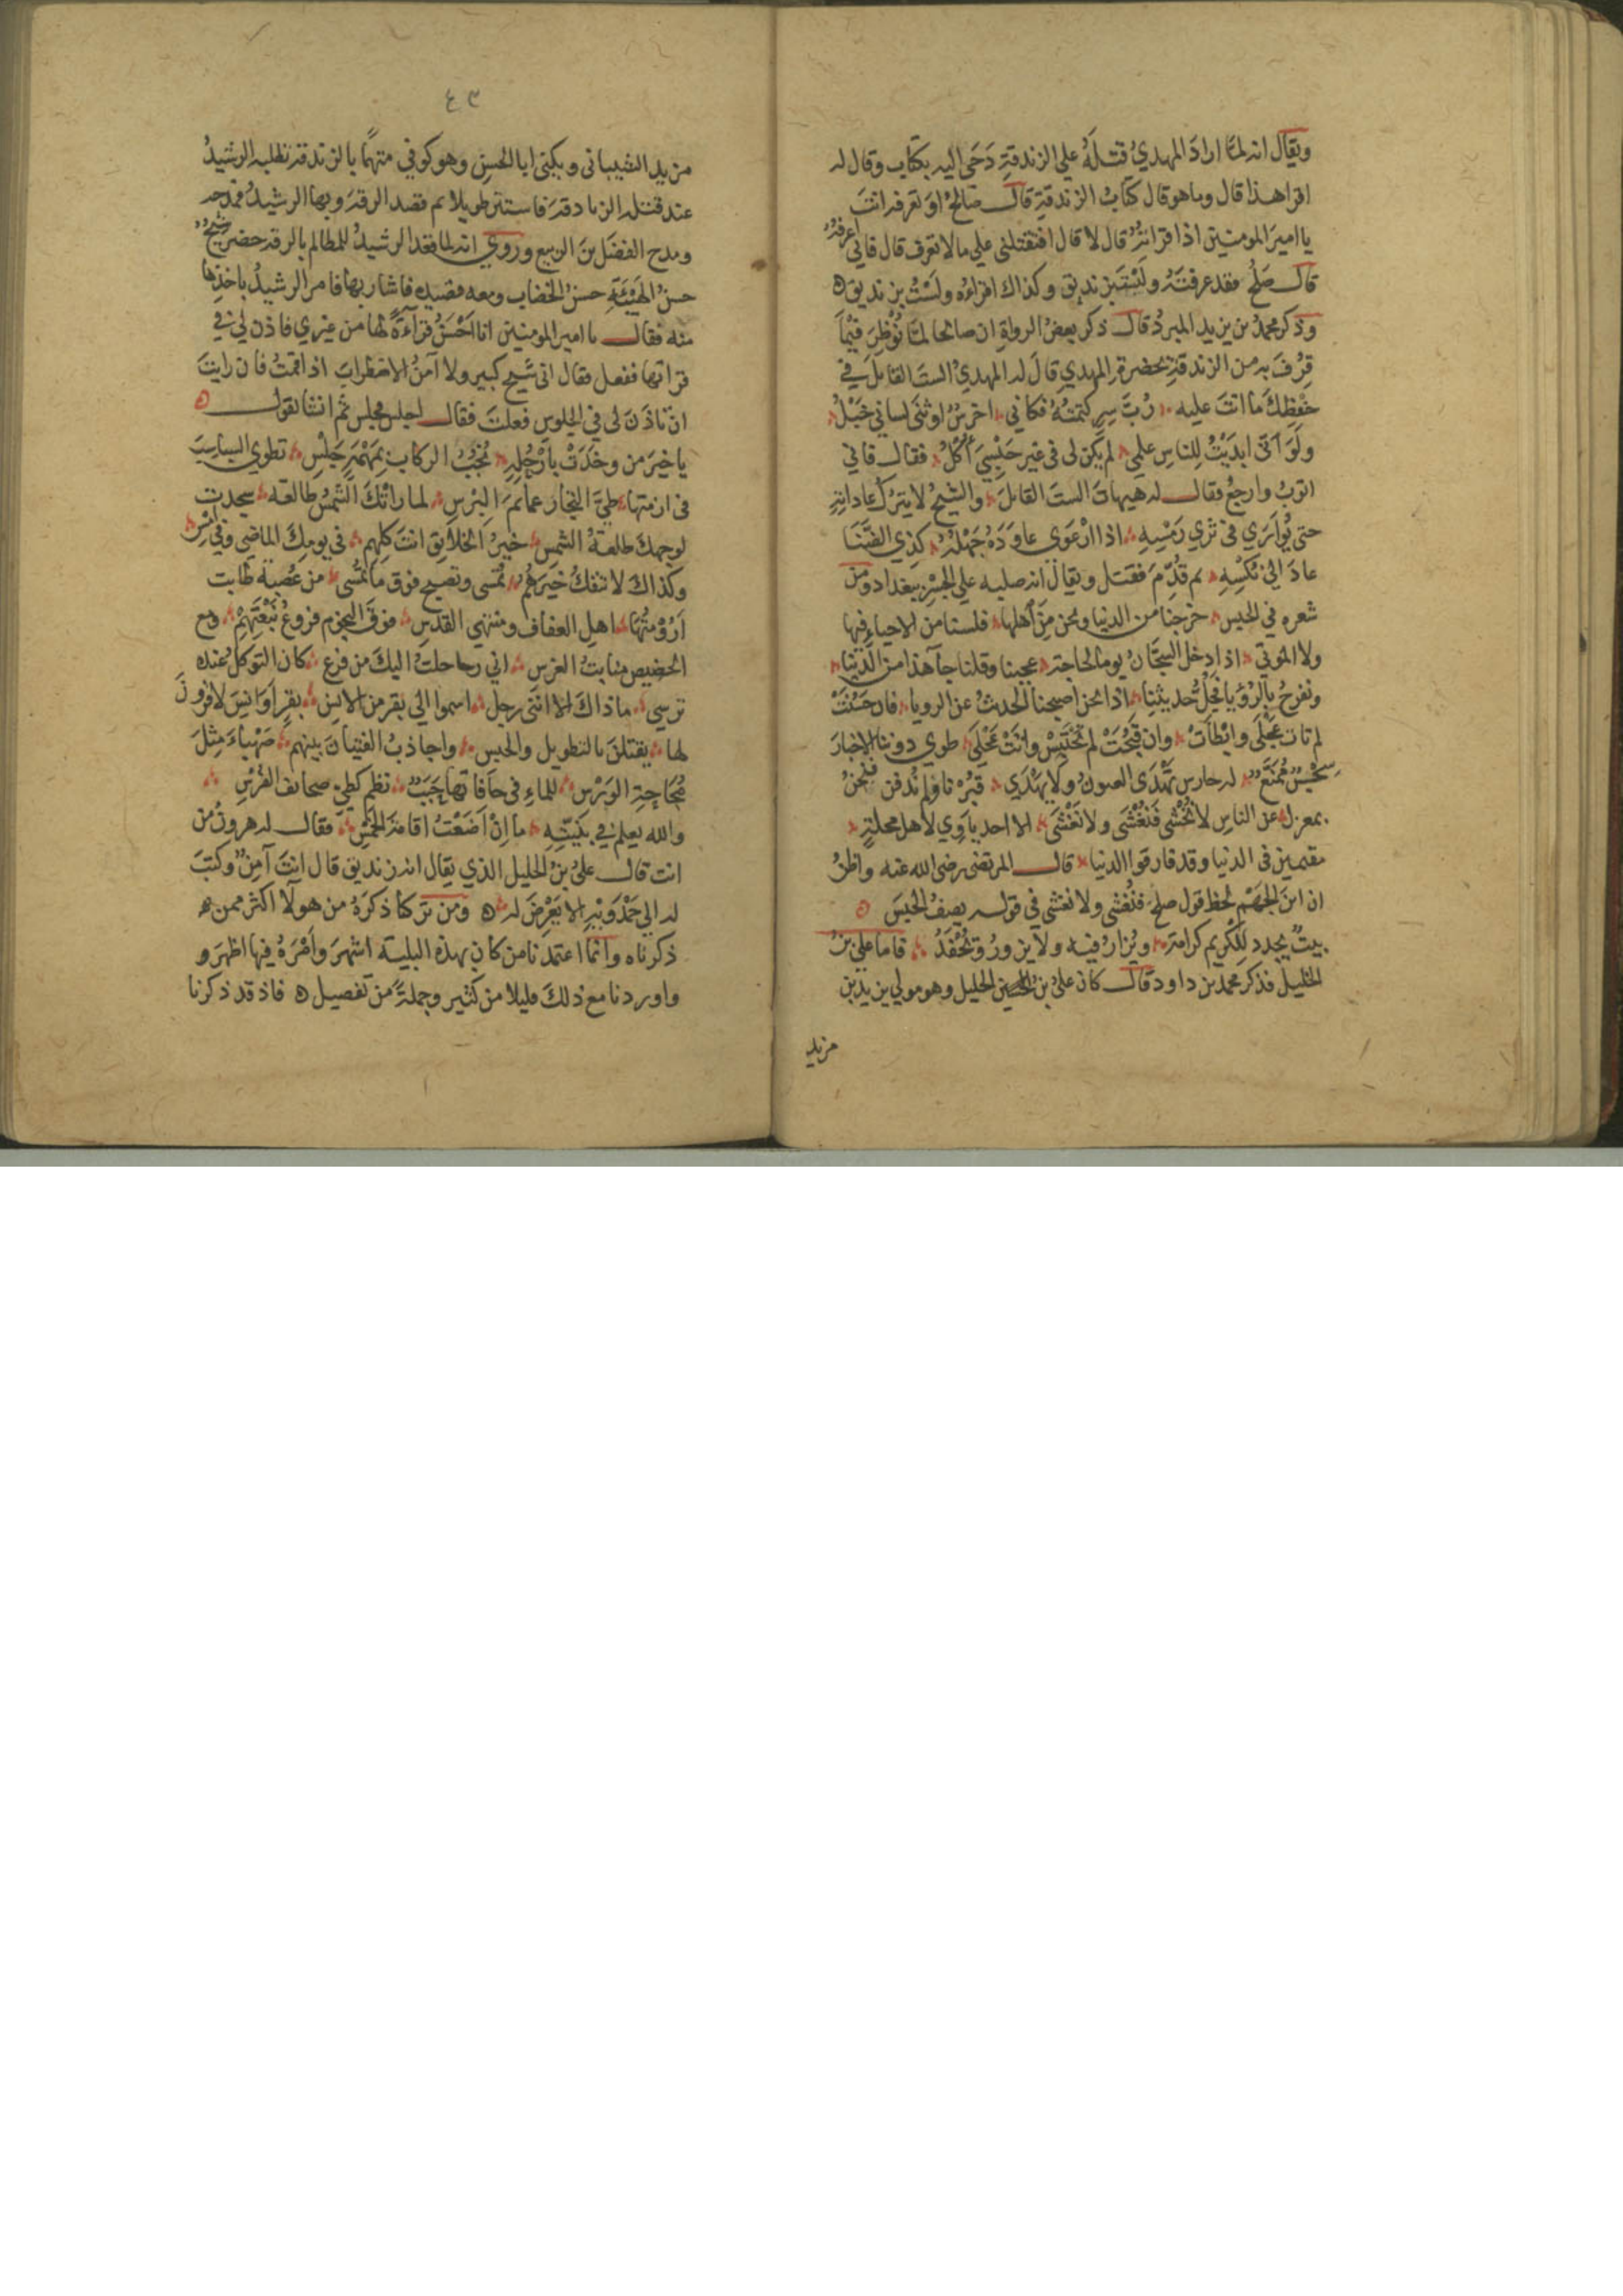 ويقال انه لمَّا ارادَ المهديُ قتلَهُ علي الزندقةِ دَحَي اليه بكتاب وقال له
اقرا هذا قال وما هو قال كتابُ الزندقةِ قالـــ صالحٌ اوَ تعرفه انتَ
يا اميرَ المومنين اذا قراتَهُ قال لا قال افتقتلني علي مالا تعرف قال فاني اعرفهُ
قالـــ صَلحٌ فقد عرفتَهُ ولَسْتَ بزنديق وكذاك اقراءُه ولَسْتُ بزنديق ه
وذكر محمدُ بن يزيد المبردُ قالـــ ذكر بعضُ الرواةِ ان صالحا لمَّا نُوظِرَ فيْمَا
قِرُفَ به من الزندقةِ بحضرةِ المهديِ قالَ له المهديُ الستَ القائلَ في
حفْظِكَ ما انتَ عليه ؞ رُبَّ سِرٍ كتمتُهُ فكاني ؞ اخرسٌ اوثنَى لساني خَبَلُ ؞
ولَوَ انّى ابدَيْتُ للناسِ علمي ؞ لم يكن لى فى غير حَبْسِيَ اكْلُ ؞ فقالـــ فاني
اتوبُ وارجعُ فقالـــ له هيهاتَ الستَ القائلَ ؞ والشيخُ لا يتركُ عاداتِهِ
حتى يُوارَي في ثري رَمْسِهِ ؞ اذا ارْعَوى عاوَدَهُ جَهْلُهُ ؞ كذِي الضَّنَا
عادَ الي نُكْسِهِ ؞ ثم قُدِّمَ فقتل ويقالُ انه صلبه علي الجسْرِ ببغداد ومن
شعره في الحبس ؞ خرجنا من الدنيا ونحن مِنَ اهلها ؞ فلسنا من الاحياءِ فيها
ولا الموتي ؞ اذا دخل السجَّانُ يوما لحاجة ؞ عجبنا وقلنا جآ هذا من الدنيا ؞
ونفرحُ بالرؤْيا فجُلُّ حديثنِا ؞ اذا نحن اصبحنا الحديثُ عن الرويا ؞ فان حَسُنَتْ
لم تات عَجْلَى وابْطَأتْ ؞ وان قَبُحَتْ لم تَحْتَبِسْ واتَتْ عَجْلَي ؞ طوي دوننا الاخبارَ
سِجْنٌ مُمَنَّعٌ ؞ له حارس تَهْدَى العيونُ ولا يَهْدَي ؞ قُبِرْنا ولم نُدفن فنحنُ
بمعزل ؞ عن الناسِ لا نُخْشى فَنُغْشَى ولا نَغْشَى ؞ الا احد ياوِي لاهل محلةٍ ؞
مقيمين فى الدنيا وقد فارقوا الدنيا ؞ قالـــ المرتضى رضى الله عنه واظنُ
ان ابنَ الجهْمِ لحظ قول صلح فنُغْشى ولا نغشى في قوله يصفُ الحبسَ ه
بيتٌ يجدد للكْريم كرامة ؞ ويُزارُ فيه ولا يزورُ ويُحْفَدُ ؞ فاما عليُ بنُ
الخليلِ فذكر محمد بن داود قالـــ كان عليُ بن الخليل وهو مولي يزيد بن
مزيد
٤٣
مزيد الشيباني ويكنى ابا الحسنِ وهو كوفي متهمًا بالزندقة فطلبه الرشيدُ
عند قتله الزنادقةَ فاستتر طويلا ثم قصد الرقةَ وبها الرشيدُ فمدحه
ومدح الفضَل بنَ الربيع وروي انه لما قعد الرشيدُ للمظالم بالرقة حضر شيخٌ
حسنُ الهيْئَةِ حسنُ الخضاب ومعه قصيده فاشار بها فامر الرشيدُ باخذِها
منه فقالـــ يا امير المومنين انا احَْسَنُ قراءَةً لها من غيري فاذن لي في
قراتها ففعل فقال اني شيخ كبير ولا آمنُ الاضطرابَ اذا قمتُ فان رايتَ
انْ تاذَنَ لى في الجلوسِ فعلتَ فقالـــ اجلس فجلس ثم انشا يقولـــ ه
يا خيرَ من وخَدَتْ بارْجُلِهِ ؞ نُجُبُ الركابِ بمَهْمَهٍ جَلْسِ ؞ تطوي السباسِبَ
فى ازمتها ؞ طيَّ التجار عمائمَ البُرْسِ ؞ لما راتْكَ الشمْسُ طالعه ؞ سجدت
لوجهك طلعةُ الشمسِ ؞ خيرُ الخلائِق انتَ كلِهمِ ؞ في يومِكَ الماضِي وفي امْسِ ؞
وكذاكَ لا تنفكُ خيرَهُمُ ؞ تُمْسى وتصبح فوق ما تمُسْى ؞ من عُصْبَه طابت
اَرُوْمَتُها ؞ اهلِ العفاف ومنتهي القدسِ ؞ فوقَ النجوم فروعُ نَبْعَتِهِمْ ؞ ومع
الحضيض منابتُ الغرسِ ؞ اني رحلتُ اليكَ من فزع ؞ كان التوكلُ عنده
ترسِي ؞ ما ذاكَ الا اننى رجل ؞ اسموا الي بقرٍ من الانِس ؞ بقرٍ اَوَانِسَ لا قرونَ
لها ؞ يقتلنَ بالتطويل والحبس ؞ واجاذبُ الفتيانَ بينهم ؞ صَهْباءَ مِثلَ
مُجَاجةِ الوَرْسِ ؞ للماءِ فى حَافاتها حَبَبٌ ؞ نظم كطيِ صحائف الفُرْسِ ؞
والله يعلم في بَنيّتِهِ ؞ ما اِنْ اَضَعْتُ اقامةَ الخمْسِ ؞ فقالـــ له هرونُ من
انت قالـــ عليُ بنُ الخليل الذي يقال انه زنديق قال انتَ آمِنٌ وكتبَ
له الي حَمْدَوَيْهِ الا يَعْرِضَ له ه ومن تركنا ذكرَهُ من هولا اكثر ممن
ذكرناه وانما اعتمدنا من كان بهذه البلية اشهرَ واَمْرُهُ فيها اظهرَ و
واوردنا مع ذلك قليلا من كثير وجملةً من تفصيل ه فاذ قد ذكرنا